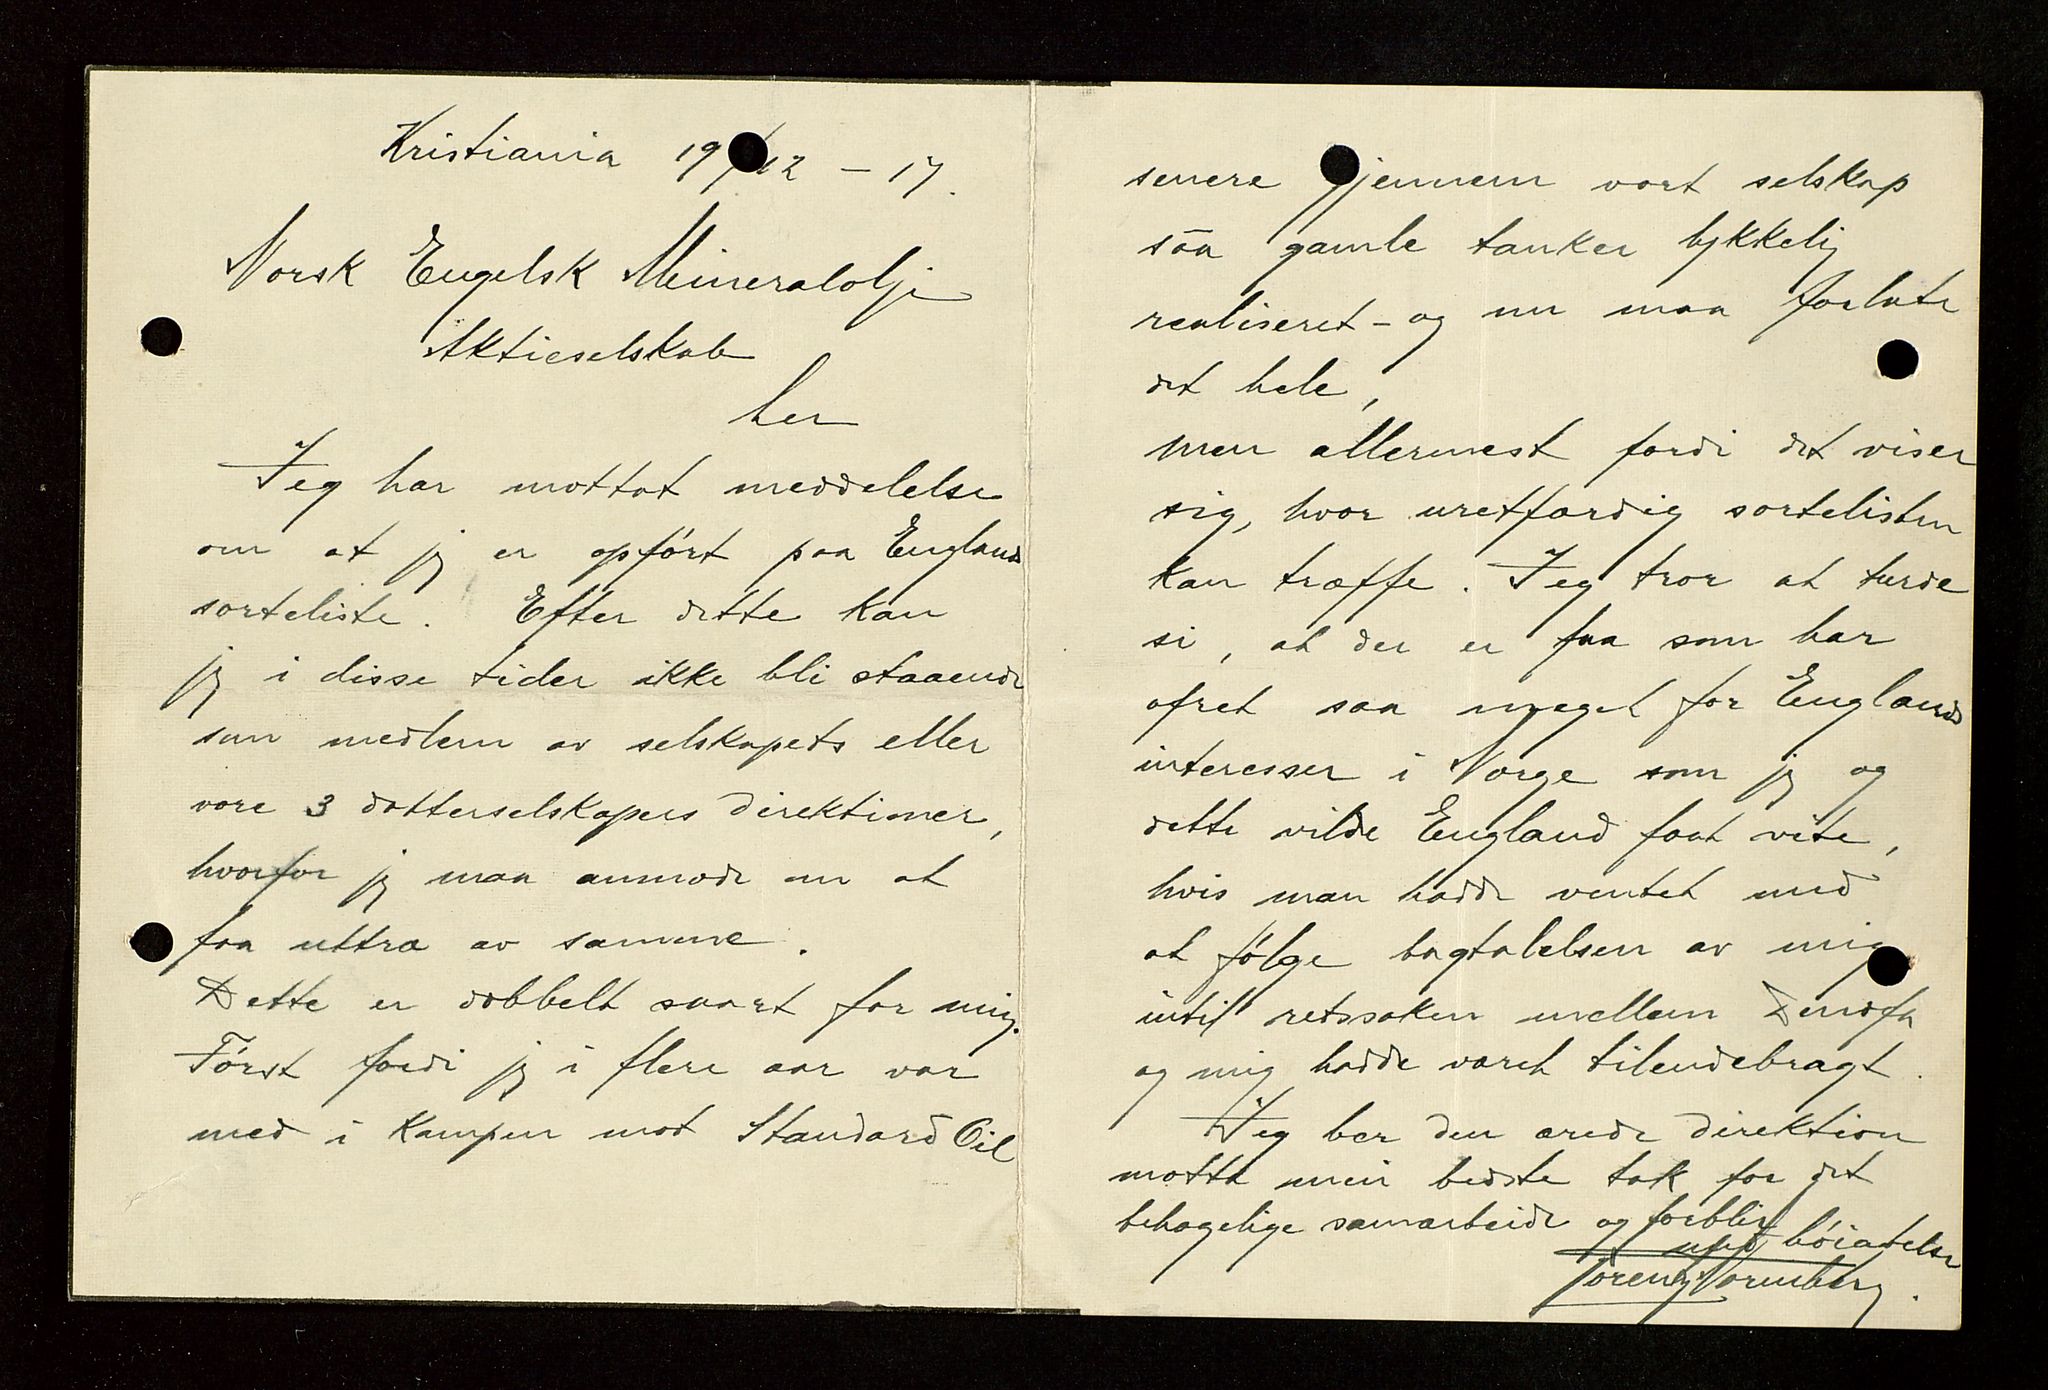 Kristiania 19/12 – 17.
Norsk Engelsk Mineralolje
Aktieselskab
her
Jeg har mottat meddelelse
om at jeg er opført paa Englands
sorteliste. Efter dette kan
jeg i disse tider ikke bli staaende
som medlem av selskapets eller
vore 3 datterselskapers direktioner,
hvorfor jeg maa anmode om at
faa uttræ av samme.
Dette er dobbelt saart for mig.
Først fordi jeg i flere aar var
med i kampen mot Standard Oil
senere gjennem vort selskap
saa gamle tanker lykkelig
realiseret – og nu maa forlate
det hele,
men allermest fordi det viser
sig, hvor uretfærdig sortelisten
kan træffe. Jeg tror at turde
si, at der er faa som har
ofret saa meget for Englands
interesser i Norge som jeg og
dette vilde England faat vite,
hvis man hadde ventet med
at følge bagtalelsen av mig
intil retssaken mellem Denofa
og mig hadde været tilendebragt.
Jeg ber den ærede direktion
motta min bedste tak for det
behagelige samarbeide og forblir
med høiagtelse